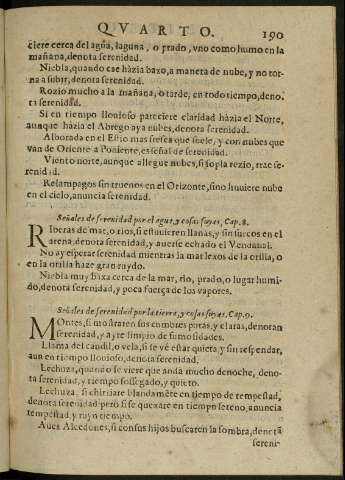 QVARTO. 190
ciere cerca del agua, laguna, o prado, vno como humo en la
mañana, denota serenidad.
Niebla, quando cae hàzia baxo, a manera de nube, y no tor-
na a subir, denota serenidad.
Rozio mucho a la mañana, o tarde, en todo tiempo, deno-
ta serenidad.
Si en tiempo lluuioso pareciere claridad hàzia el Norte,
aunque hàzia el Abrego aya nubes, denota serenidad.
Alborada en el Estio mas fresca que suele, y con nubes que
van de Oriente a Poniente, es señal de serenidad.
Viento norte, aunque allegue nubes, si sopla rezio, trae se-
renidad.
Relampagos sin truenos en el Orizonte, sino huuiere nube
en el cielo, anuncia serenidad.
Señales de serenidad por el agua, y cosas suyas, Cap. 8.
RIberas de mar, o rios, si estuuieren llanas, y sin surcos en el
arena, denota serenidad, y auerse echado el Vendaual.
No ay esperar serenidad mientras la mar lexos de la orilla, o
en la orilla haze gran ruydo.
Niebla muy baxa cerca de la mar, rio, prado, o lugar humi-
do, denota serenidad, y poca fuerça de los vapores.
Señales de serenidad por la tierra, y cosas suyas, Cap. 9.
MOntes, si mostraren sus cumbres puras, y claras, denotan
serenidad, y ayre limpio de fumosidades.
Llama del candil, o vela, si se vè estar quieta, y sin respendar,
aun en tiempo lluuioso, denota serenidad.
Lechuza, quando se viere que anda mucho de noche, deno-
ta serenidad, y tiempo sossegado, y quieto.
Lechuza si chirriare blandamẽte en tiempo de tempestad,
denota serenidad: pero si se quexare en tiempo sereno, anuncia
tempestad, y ruyn tiempo.
Aues Alcedones, si con sus hijos buscaren la sombra, denotã
sereni-